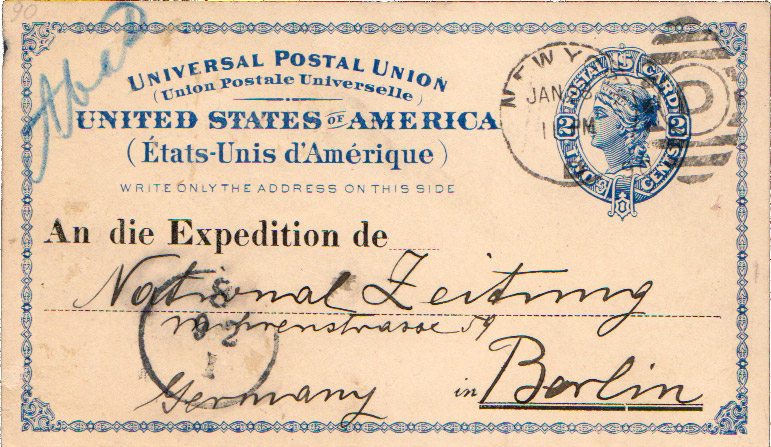 90
UNIVERSAL POSTAL UNION
(Union Postale Universelle)
UNITED STATES OF AMERICA
(États-Unis d'Amérique)
WRITE ONLY THE ADDRESS ON THIS SIDE
NEW Y
JAN
PM
POSTAL CARD
2 2
TWO CENTS
U S
An die Expedition de
National Zeitung
Mohrenstrasse 59
Germany in Berlin
S
9 2
1